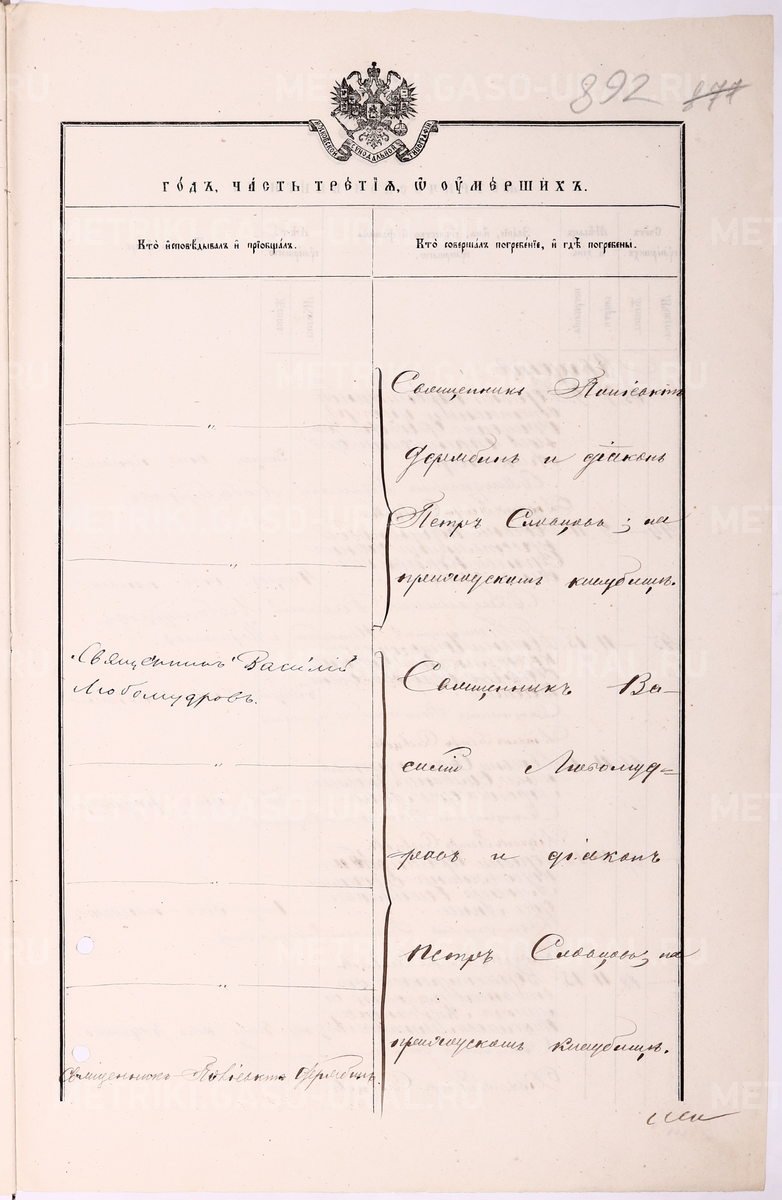 892 877
МОСКОВСКОЙ СУНОДАЛЬНОЙ ТИПОГРАФІИ
ГО́ДЪ, ЧА́СТЬ ТРЕ́ТІЯ, Ѿ ОУМЕ́РШИХЪ.
Кто̀ и҆сповѣ́дывалъ и҆ прїѡбща́лъ.
Кто̀ соверша́лъ погребе́нїе, и҆ гдѣ̀ погребены̀.
Священникъ
„
и діаконъ
Петръ Словцовъ; на
„
приходскомъ кладбищѣ.
Священникъ Василій
Любомудровъ.
Священникъ Ва-
„
силій Любомуд-
ровъ и діаконъ
„
Петръ Словцовъ; на
„
приходскомъ кладбищѣ.
Священникъ
METRIKI.GASO-URAL.RU